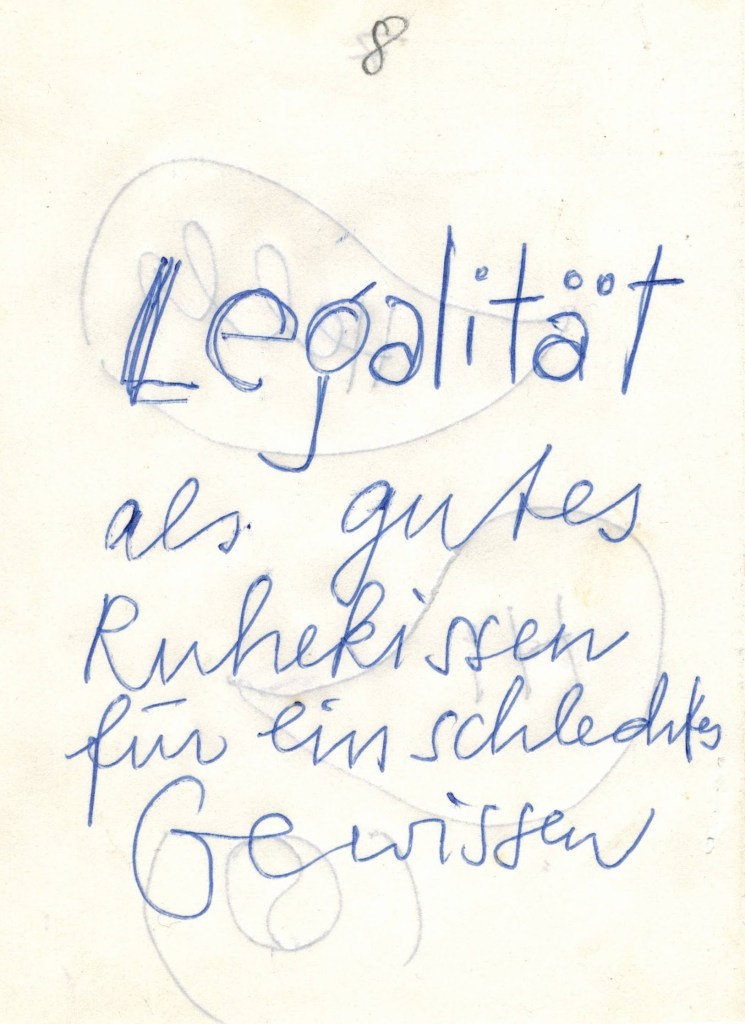 8
Legalität
als gutes
Ruhekissen
für ein schlechtes
Gewissen